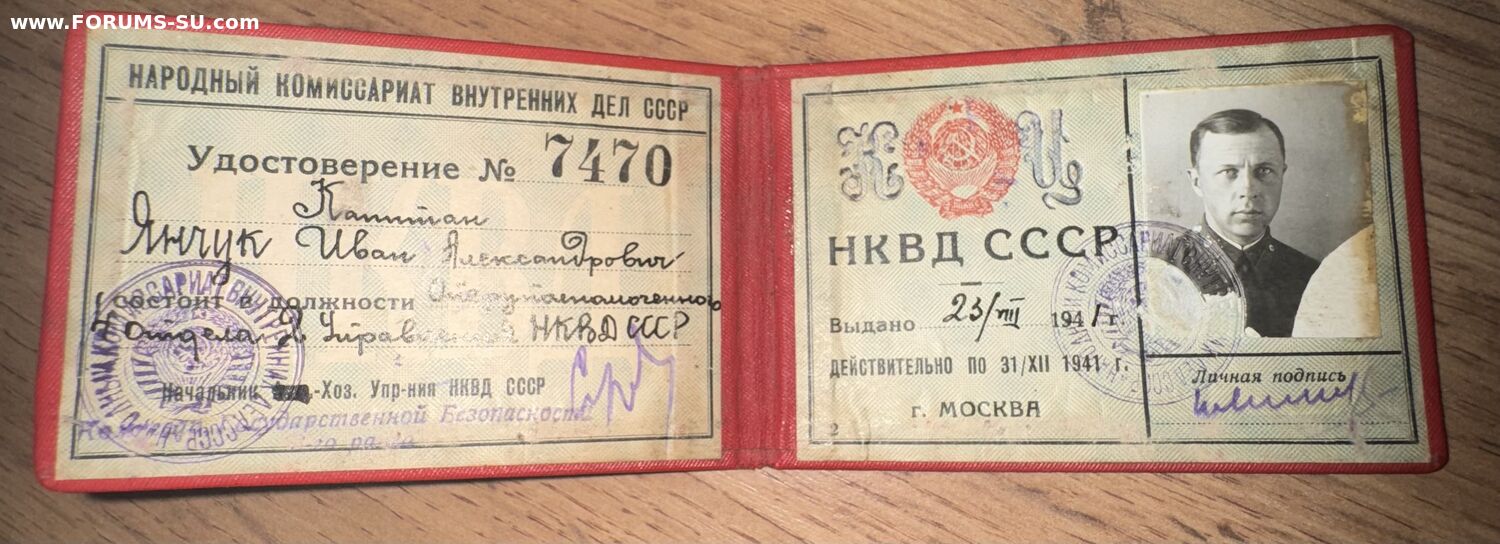 www.FORUMS-SU.com
НАРОДНЫЙ КОМИССАРИАТ ВНУТРЕННИХ ДЕЛ СССР
Удостоверение № 7470
Капитан
Янчук Иван Александрович
состоит в должности Оперуполномоченного
Отдела Управления НКВД СССР
Начальник -Хоз. Упр-ния НКВД СССР
Государственной Безопасности
Н Ц
НКВД СССР
Выдано 23/VIII 1941 г.
ДЕЙСТВИТЕЛЬНО ПО 31/XII 1941 г.
г. МОСКВА
2
Личная подпись